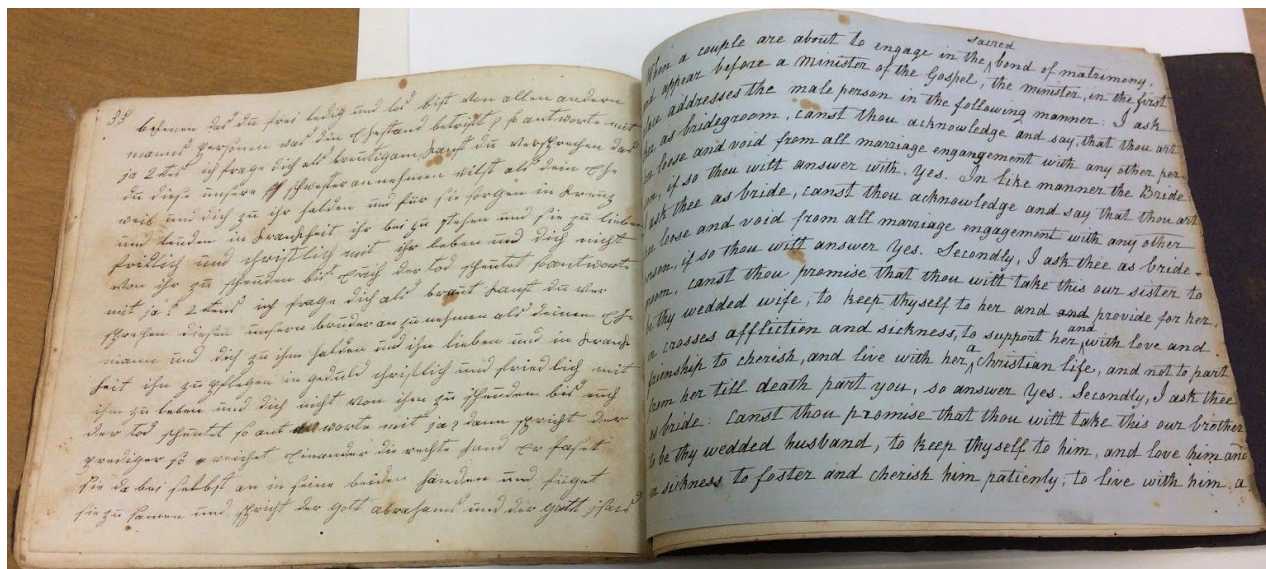 33
bekenen das du frei ledig und los bist von allen andern
manns personen was den Ehestand betrifft so antworte mit
ja 2 tens ich frage dich als breutigam kanst du versprechen das
du diese unsere schwester annehmen wilst als dein Ehe
weib und dich zu ihr halden und für sie sorgen in Kreuz
und leiden in Krankheit ihr bei zu stehen und sie zu lieben
fridlich und christlich mit ihr leben und dich nicht
von ihr zu scheuden bis Euch der tod scheutet so antworte
mit ja 2 tens ich frage dich als braut kanst du ver
sprechen diesen unsern bruder an zu nehmen als deinen Ehe
mann und dich zu ihm halden und ihn lieben und in Krank
heit ihn zu pflegen in geduld christlich und friedlich mit
ihm zu leben und dich nicht von ihm zu scheuden bis euch
der tod scheutet so ant worte mit ja dann spricht der
prediger so reichet Einander die rechte hand Er fasset
sie da bei selbst an in seine beiden händen und füget
sie zu samen und spricht der Gott abrahams und der gott isaks
When a couple are about to engage in the sacred bond of matrimony,
appear before a minister of the Gospel, the minister, in the first
addresses the male person in the following manner: I ask
as bridegroom, canst thou acknowledge and say, that thou art
loose and void from all marriage engangement with any other per-
if so thou wilt answer with, Yes. In like manner the Bride
ask thee as bride, canst thou acknowledge and say that thou art
loose and void from all marriage engagement with any other
if so thou wilt answer Yes. Secondly, I ask thee as bride-
groom, canst thou promise that thou wilt take this our sister to
be thy wedded wife, to keep thyself to her and and provide for her,
in crosses affliction and sickness, to support her, and with love and
frienship to cherish, and live with her a Christian life, and not to part
from her till death part you, so answer Yes. Secondly, I ask thee
as bride: Canst thou promise that thou wilt take this our brother
to be thy wedded husband, to keep thyself to him, and love him and
in sickness to foster and cherish him patienly, to live with him, a